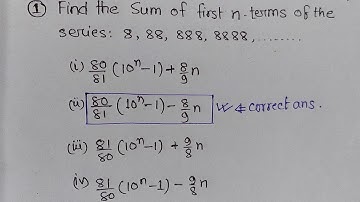 ① Find the Sum of first n-terms of the
series: 8, 88, 888, 8888, ........
(i) 80/81 (10ⁿ-1) + 8/9 n
(ii) 80/81 (10ⁿ-1) - 8/9 n ← correct ans.
(iii) 81/80 (10ⁿ-1) + 9/8 n
(iv) 81/80 (10ⁿ-1) - 9/8 n